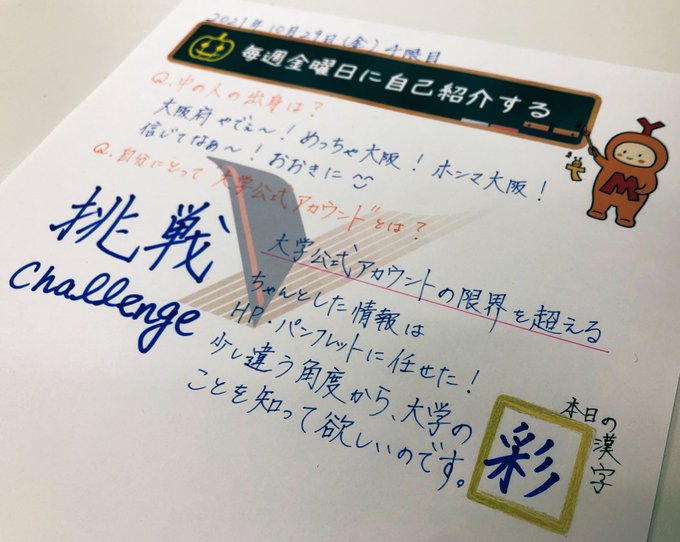 2021年10月29日(金)4限目
毎週金曜日に自己紹介する
Q.中の人の出身は?
大阪府やでぇ〜!めっちゃ大阪!ホンマ大阪!
信じてなぁ〜!おおきに
Q.自分にとって"大学公式アカウント"とは?
挑戦
challenge
大学公式アカウントの限界を超える
ちゃんとした情報は
HP・パンフレットに任せた!
少し違う角度から、大学の
ことを知って欲しいのです。
本日の漢字
彩
M